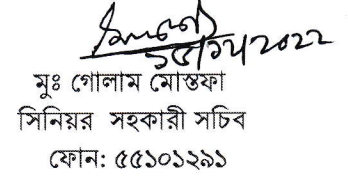 ১৫/১২/২০২২
মুঃ গোলাম মোস্তফা
সিনিয়র সহকারী সচিব
ফোন: ৫৫১০১২৯১